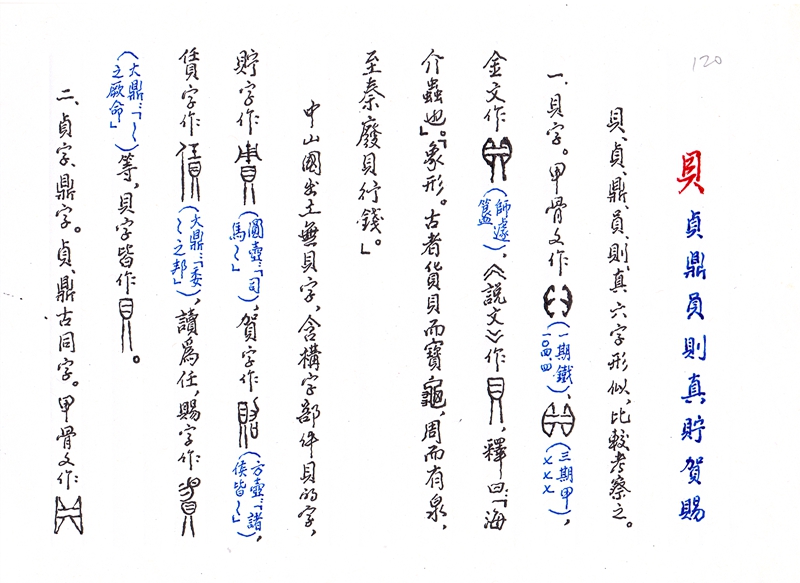 120
貝 貞鼎員則真貯賀賜
貝、貞、鼎、員、則、真六字形似，比較考察之。
一、貝字。甲骨文作（一期鐵一〇四.四）、（三期甲×××），
金文作（師遽簋），《說文》作貝，釋曰：「海
介蟲也」。「象形。古者貨貝而寶龜，周而有泉，
至秦廢貝行錢。」
中山國出土無貝字，含構字部件貝的字，
貯字作（圓壺：「司馬～」），賀字作（方壺：「諸侯皆～」，
賃字作（大鼎：「委～之邦」），讀爲任，賜字作
（大鼎：「～之厥命」）等，貝字皆作。
二、貞字、鼎字。貞、鼎古同字。甲骨文作